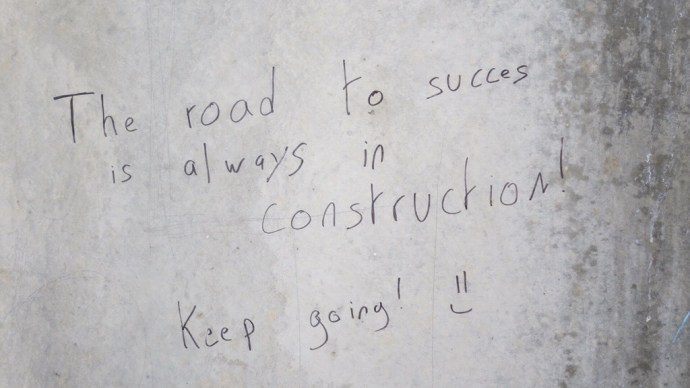 The road to succes
is always in
construction!
Keep going! :)